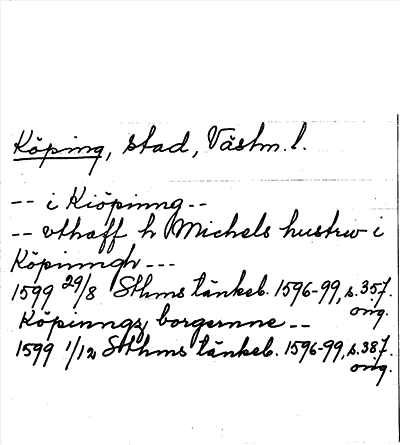 Köping, stad, Västm. l.
-- i Kiöpinng --
-- vthaff h Michels hustrw i
Köpinngh ---
1599 29/8 Sthms tänkeb. 1596-99, s. 357.
orig.
Köpinngz borgernne --
1599 1/12 Sthms tänkeb. 1596-99, s. 387.
orig.